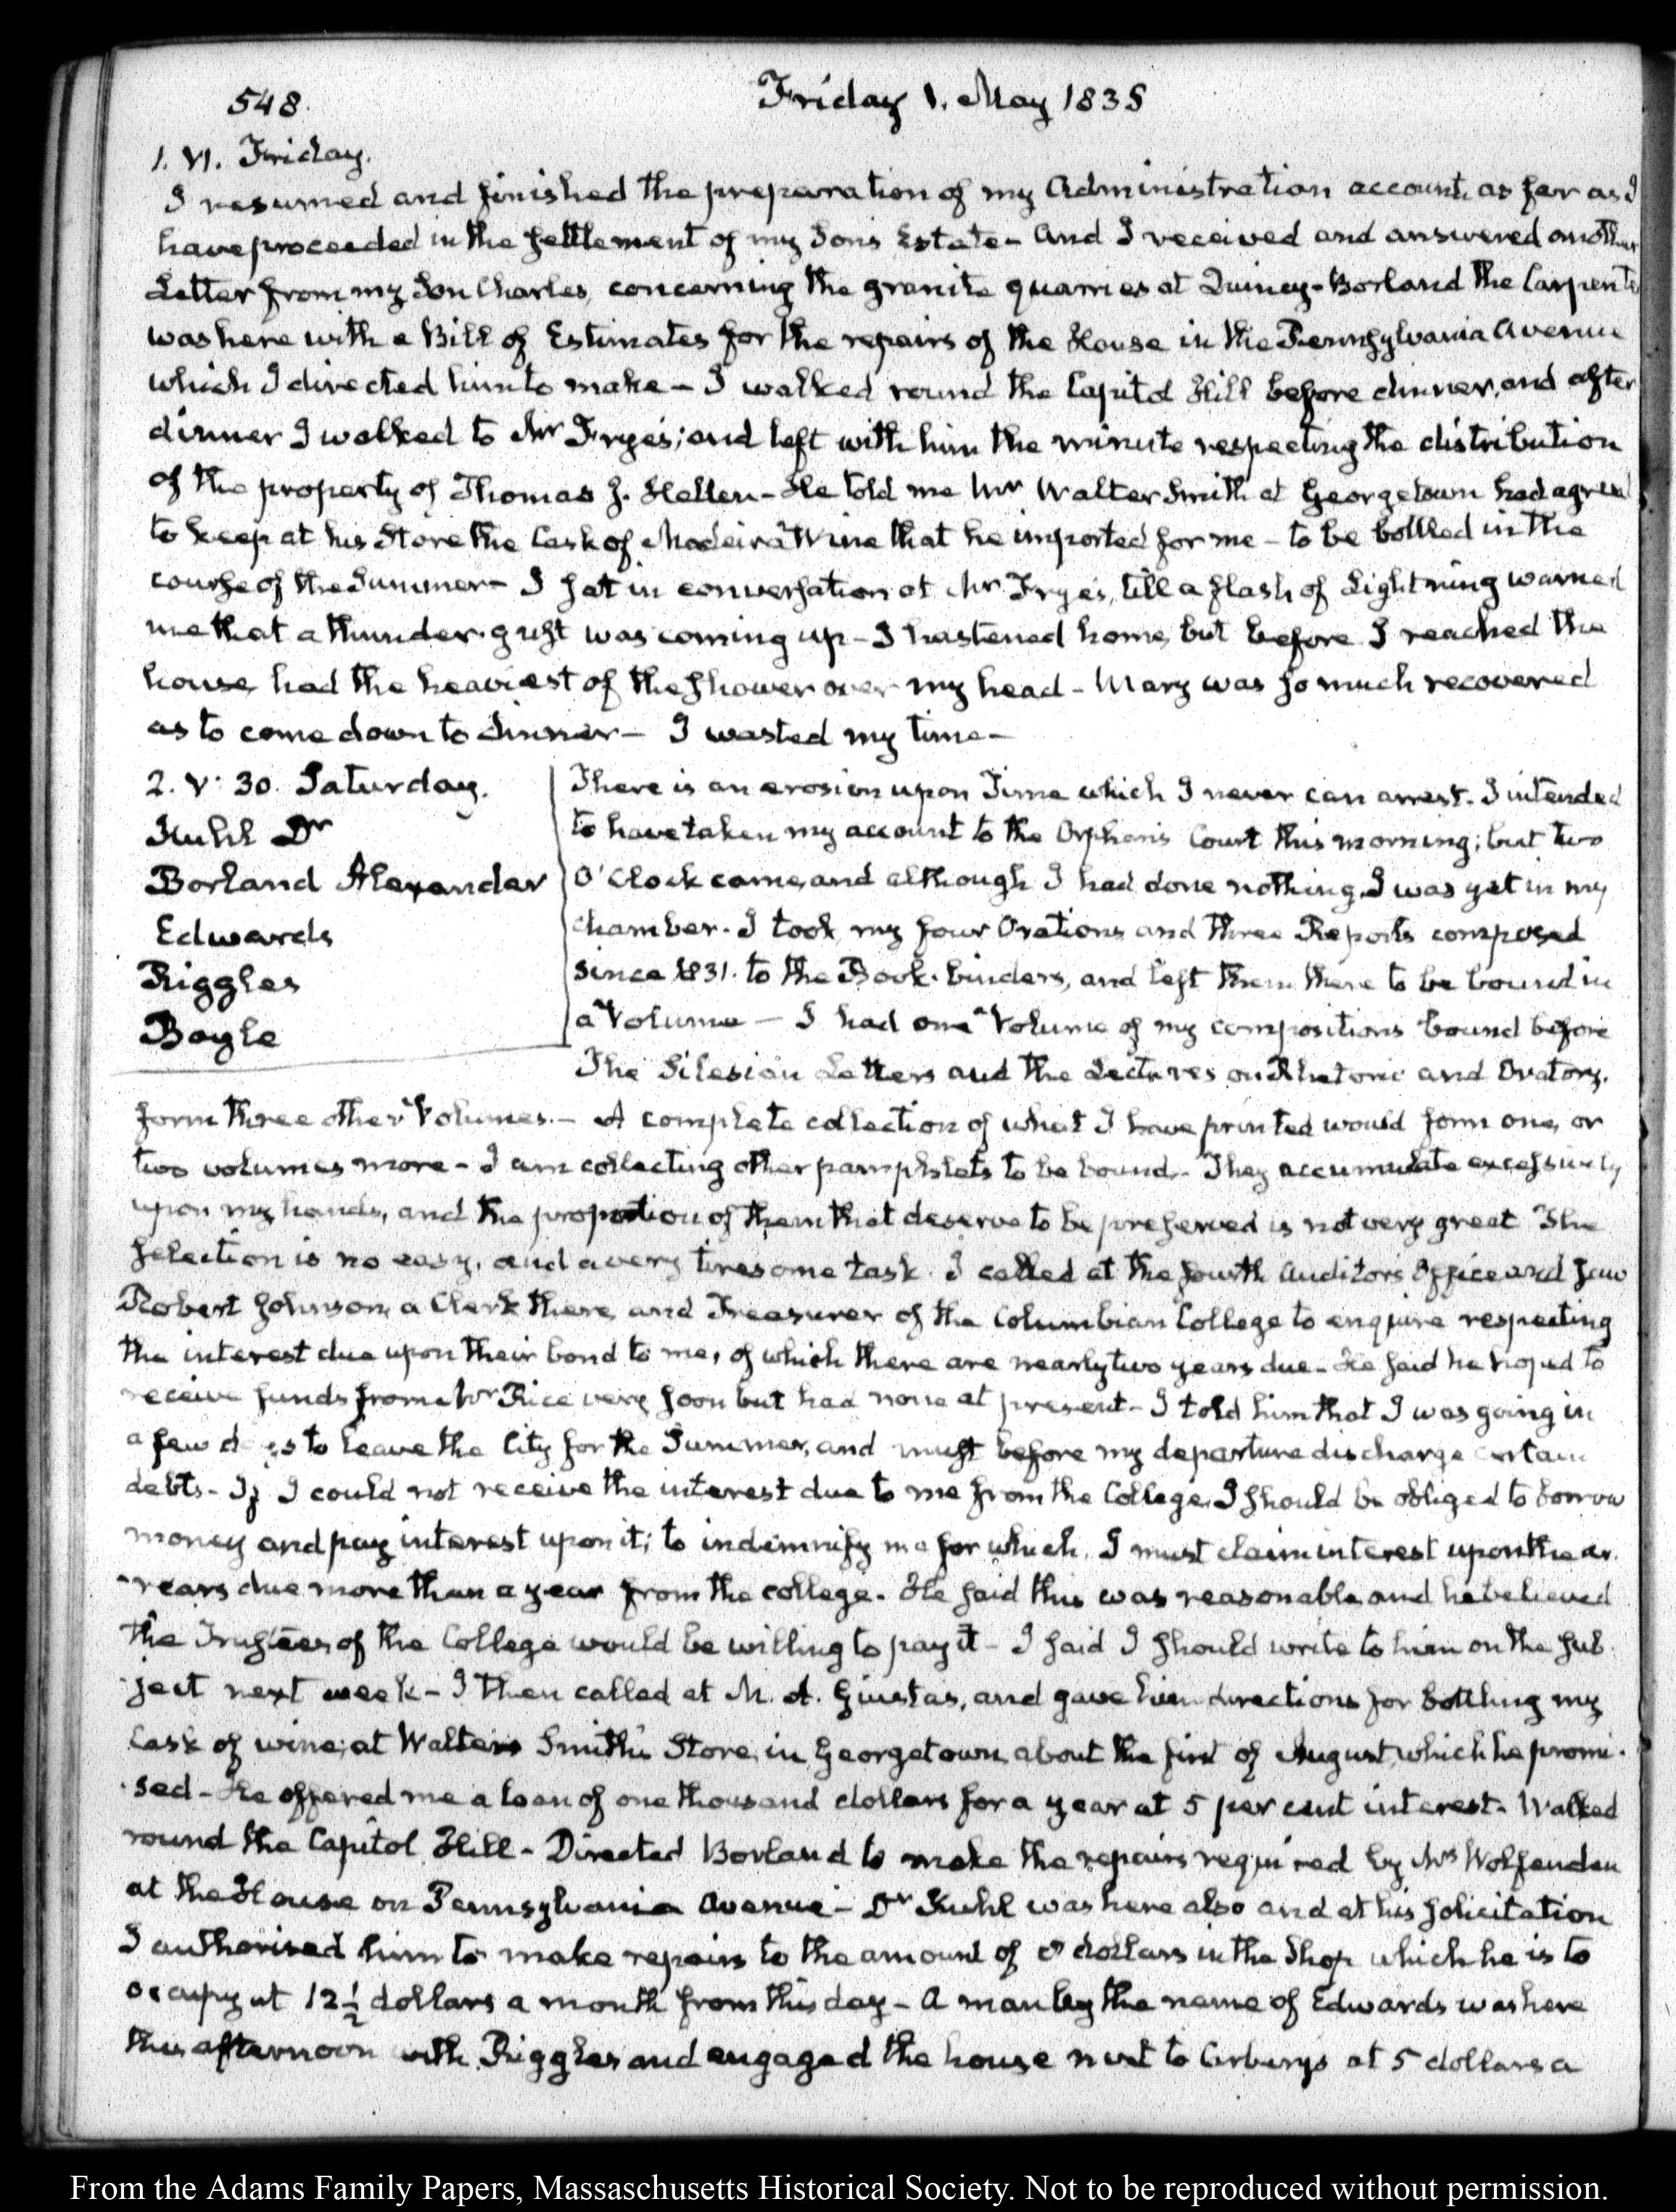 548.
Friday 1. May 1835
1. VI. Friday.
I resumed and finished the preparation of my Administration account, as far as I
have proceeded in the settlement of my Son's Estate - And I received and answered another
Letter from my Son Charles, concerning the granite quarries at Quincy - Borland the Carpenter
was here with a Bill of Estimates for the repairs of the House in the Pennsylvania Avenue
which I directed him to make - I walked round the Capitol Hill before dinner, and after
dinner I walked to Mr Frye's; and left with him the minute respecting the distribution
of the property of Thomas J. Hellen - He told me Mr Walter Smith at Georgetown had agreed
to keep at his Store the Cask of Madeira Wine that he imported for me - to be bottled in the
course of the Summer - I sat in conversation at Mr Frye's, till a flash of Lightning warned
me that a thunder-gust was coming up - I hastened home, but before I reached the
house, had the heaviest of the shower over my head - Mary was so much recovered
as to come down to dinner - I wasted my time -
2. V. 30. Saturday.
Kuhl Dr
Borland Alexander
Edwards
Riggles
Boyle
There is an erosion upon Time which I never can arrest. I intended
to have taken my account to the Orphan's Court this morning; but two
O'Clock came, and although I had done nothing, I was yet in my
chamber. I took my four Orations and three Reports composed
since 1831. to the Book-binders, and left them there to be bound in
a Volume - I had one Volume of my compositions bound before
The Silesian Letters and the Lectures on Rhetoric and Oratory,
form three other Volumes. - A complete collection of what I have printed would form one, or
two volumes more - I am collecting other pamphlets to be bound. - They accumulate excessively
upon my hands, and the proportion of them that deserve to be preserved is not very great The
selection is no easy, and a very tiresome task. I called at the fourth Auditor's Office and saw
Robert Johnson, a Clerk there, and Treasurer of the Columbian College to enquire respecting
the interest due upon their bond to me, of which there are nearly two years due - He said he hoped to
receive funds from Mr Rice very soon but had none at present - I told him that I was going in
a few days to leave the City for the Summer, and must before my departure discharge certain
debts - If I could not receive the interest due to me from the College, I should be obliged to borrow
money and pay interest upon it; to indemnify me for which, I must claim interest upon the ar-
-rears due more than a year from the college. He said this was reasonable and he believed
the Trustees of the College would be willing to pay it - I said I should write to him on the sub-
-ject next week - I then called at M. A. Giusta's, and gave him directions for bottling my
Cask of wine, at Walter Smith's Store, in Georgetown, about the first of August, which he promi-
-sed - He offered me a loan of one thousand dollars for a year at 5 per cent interest. Walked
round the Capitol Hill - Directed Borland to make the repairs required by Mrs Wolfenden
at the House on Pennsylvania Avenue - Dr Kuhl was here also and at his solicitation
I authorised him to make repairs to the amount of dollars in the Shop which he is to
occupy at 12½ dollars a month from this day - A man by the name of Edwards was here
this afternoon with Riggles and engaged the house next to Arbury's at 5 dollars a
From the Adams Family Papers, Massachusetts Historical Society. Not to be reproduced without permission.